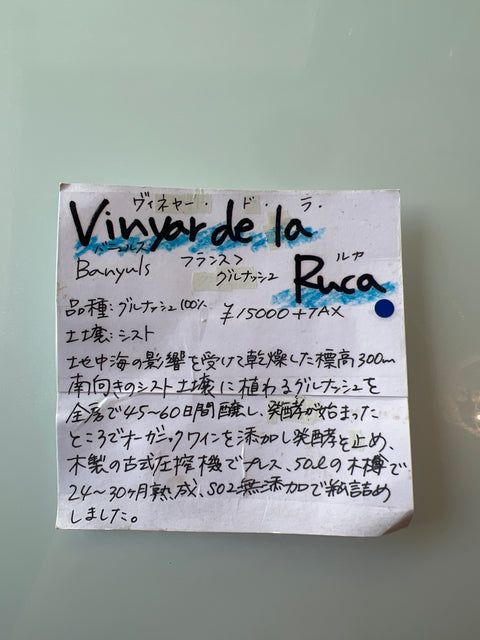 ヴィネヤー・ド・ラ・
Vinyar de la
バニュルス
Banyuls フランス>
グルナッシュ
ルカ
Ruca
品種:グルナッシュ100%
¥15000+TAX
土壌:シスト
地中海の影響を受けて乾燥した標高300m
南向きのシスト土壌に植わるグルナッシュを
全房で45〜60日間醸し、発酵が始まった
ところでオーガニックワインを添加し発酵を止め、
木製の古式圧搾機でプレス、50ℓの木樽で
24〜30ヶ月熟成、SO2無添加で瓶詰め
しました。